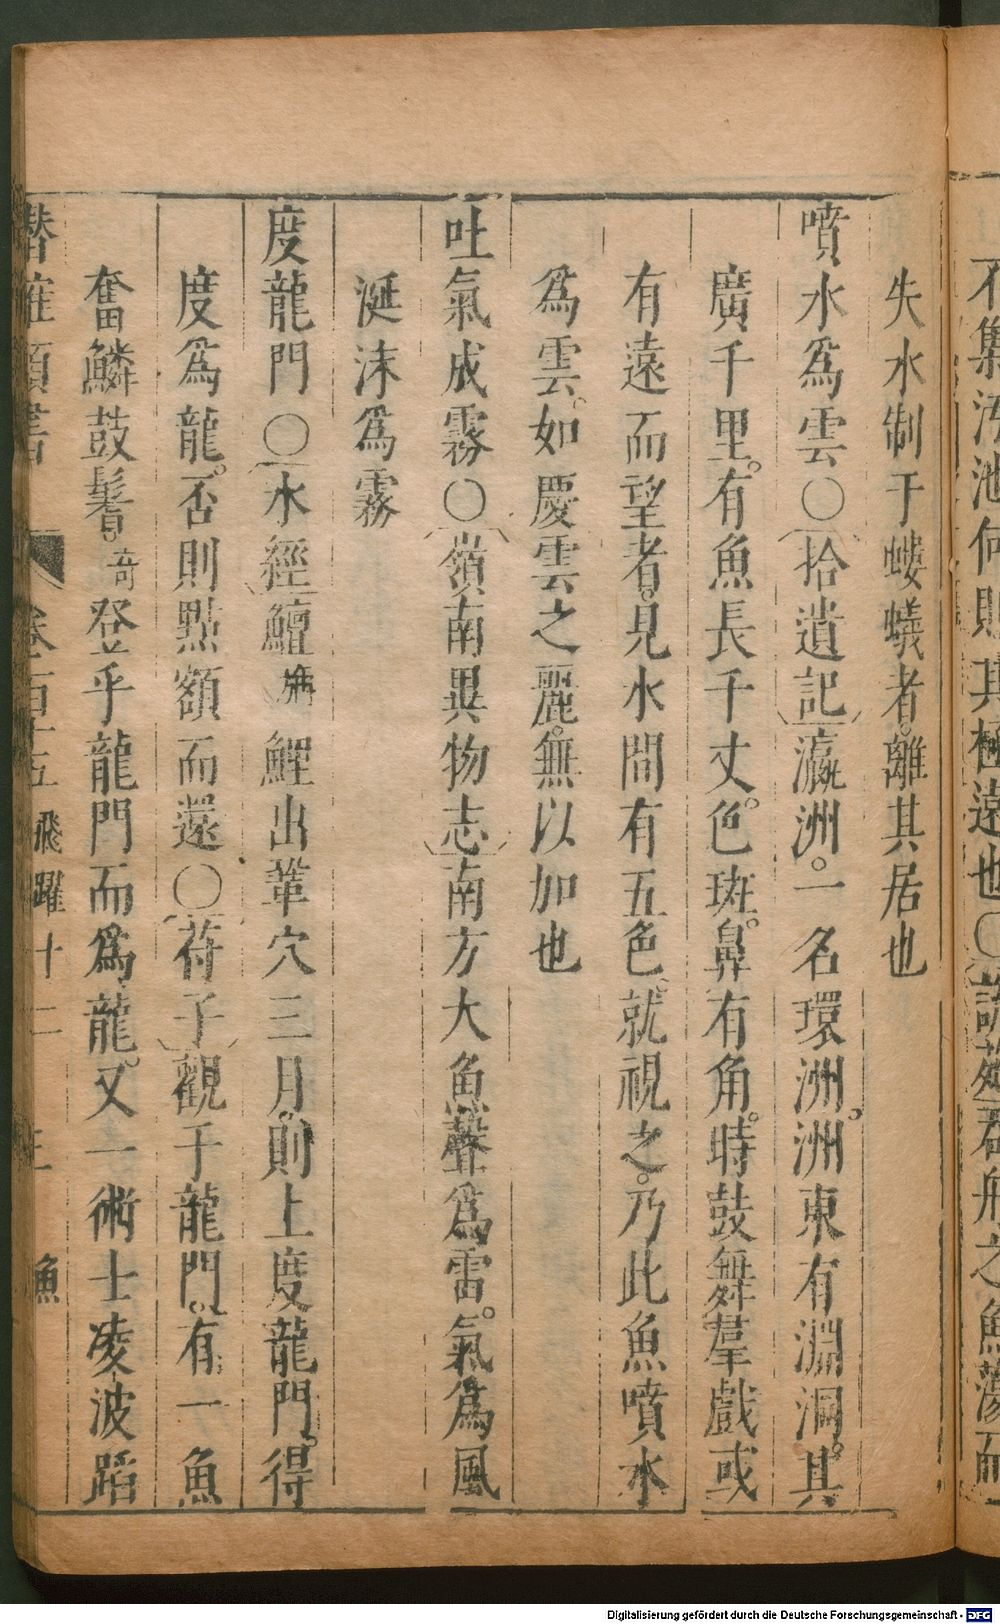 不集汚池何則其極遠也○說苑君用之魚蕩而
失水制于螻蟻者離其居也
噴水爲雲○拾遺記瀛洲。一名環洲。洲東有淵洞。其
廣千里。有魚長千丈。色斑。鼻有角。時鼓舞羣戲或
有遠而望者。見水間有五色。就視之。乃此魚噴水
爲雲。如慶雲之麗。無以加也
吐氣成霧○嶺南異物志南方大魚聲爲雷。氣爲風
涎沫爲霧
度龍門○水經鱣鯉出鞏穴三月。則上度龍門。得
度爲龍。否則點額而還○苻子觀于龍門。有一魚
奮鱗鼓鬐。奇登乎龍門而爲龍。又一術士凌波蹈
潛確類書 卷百十五 飛躍十二 魚
Digitalisierung gefördert durch die Deutsche Forschungsgemeinschaft - DFG